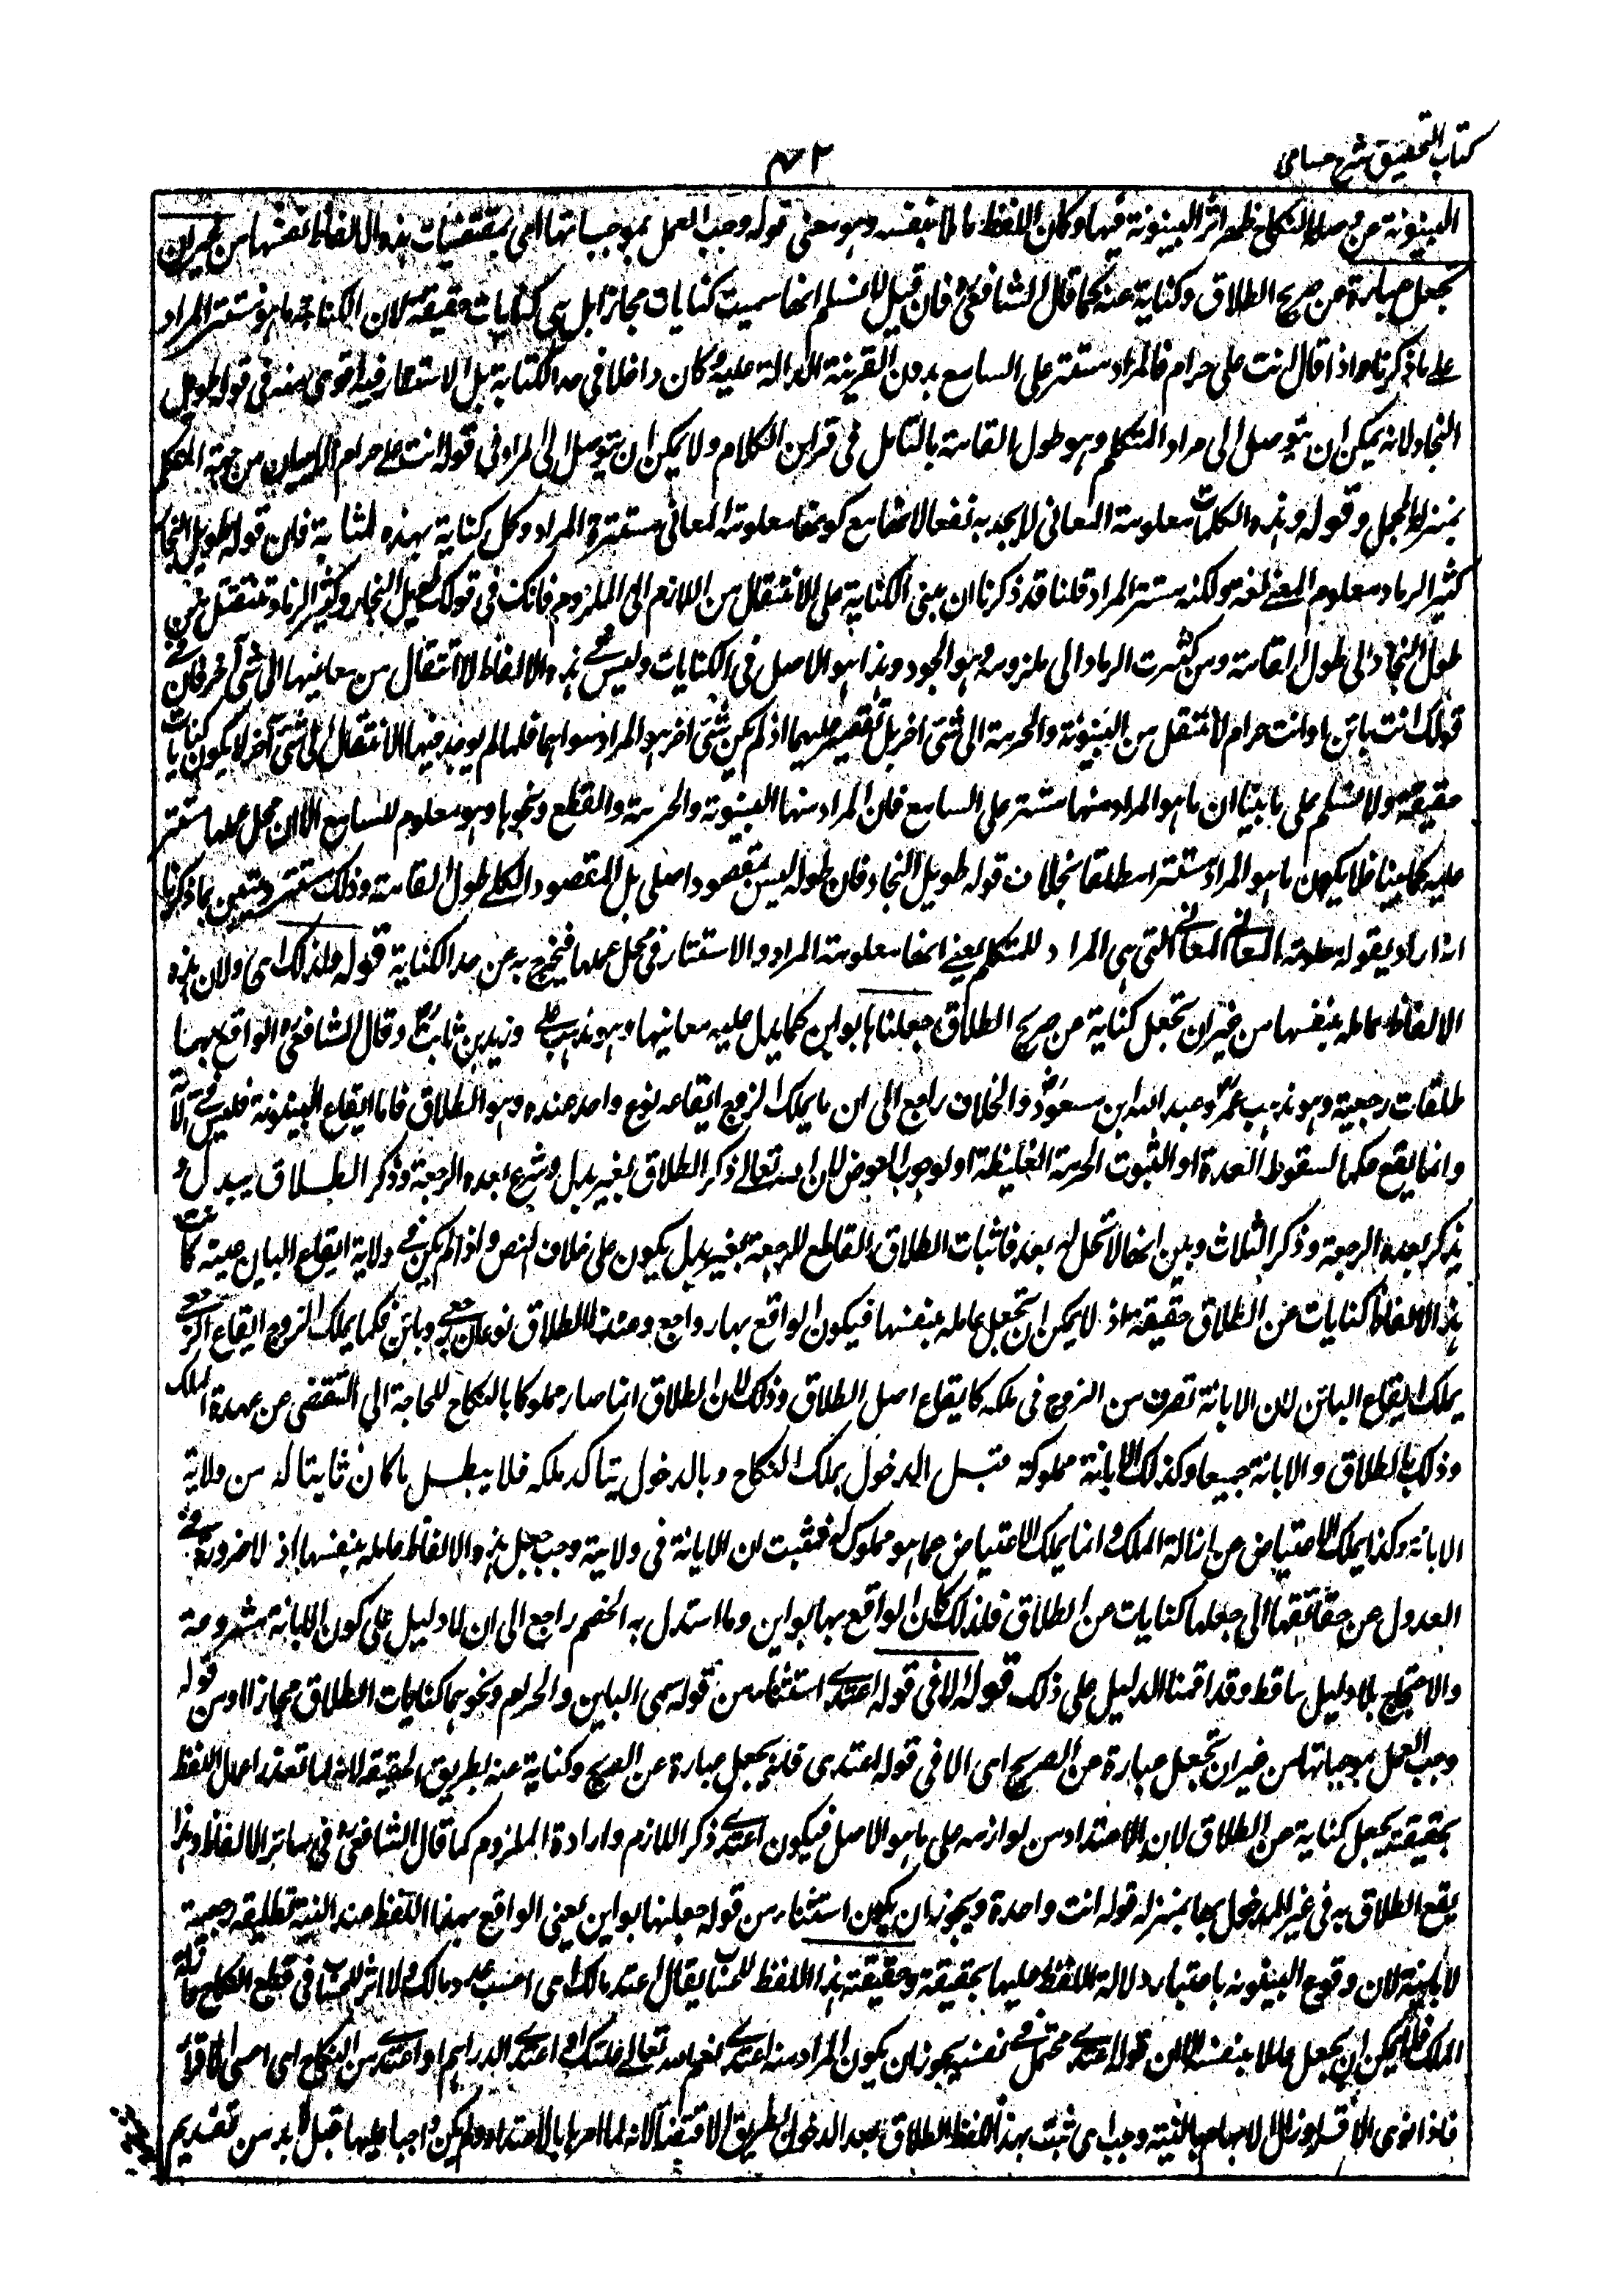 كتاب التحقيق شرح حسامى
٤٢
البينونة عن وصلة النكاح ظهر اثر البينونة فيها وكان اللفظ عاملا بنفسه وهو معنى قوله وجب العمل بموجباتها اى بمقتضيات هذه الالفاظ نفسها من غير ان
تجعل عبارة عن صريح الطلاق وكناية عنه كما قال الشافعى رح فان قيل لا نسلم انها سميت كنايات مجازا بل هى كنايات حقيقة لان الكناية ما هو مستتر المراد
على ما ذكرنا واذا قال انت على حرام فالمراد مستتر على السامع بدون القرينة الدالة عليه كان داخلا فى حد الكناية بل الاستتار فيه اقوى منه فى قوله طويل
النجاد لانه يمكن ان يتوصل الى مراد المتكلم وهو طول القامة بالتامل فى قراين الكلام ولا يمكن ان يتوصل الى المراد فى قوله انت على حرام الا ببيان من جهة المتكلم
بمنزلة المجمل وقوله وهذه الكلمات معلومة المعانى لا يجديه نفعا لانها مع كونها معلومة المعانى مستترة المراد وكل كناية بهذه المثابة فان قوله طويل النجاد
كثير الرماد معلوم المعنى لغة ولكنه مستتر المراد قلنا قد ذكرنا ان مبنى الكناية على الانتقال من اللازم الى الملزوم فانك فى قولك طويل النجاد وكثير الرماد تنتقل من
طول النجاد الى طول القامة ومن كثرت الرماد الى ملزومه وهو الجود وهذا هو الاصل فى الكنايات وليس فى هذه الالفاظ الا انتقال من معانيها الى شئ آخر فان فى
قولك انت بائن او انت حرام لا تنتقل من البينونة والحرمة الى شئ اخر بل تقتصر عليهما اذ لم يكن شئ اخر هو المراد سواهما فلما لم يوجد فيها الانتقال الى شئ آخر لا يكون كنايات
حقيقة ولا نسلم على ما بينا ان ما هو المراد منها مستتر على السامع فان المراد منها البينونة والحرمة والقطع ونحوها وهو معلوم للسامع الا ان محل عملها مستتر
عليه كما بينا فلا يكون ما هو المراد مستترا مطلقا بخلاف قوله طويل النجاد فان طوله ليس بمقصود اصلى بل المقصود الكلى طول القامة وذلك مستتر وتبين بما ذكرنا
انه اراد بقوله معلومة المعانى المعانى التى هى المراد للمتكلم يعنى انها معلومة المراد والاستتار فى محل عملها فيخرج به عن حد الكناية قوله فلذلك اى ولان هذه
الالفاظ عاملة بنفسها من غير ان تجعل كناية عن صريح الطلاق جعلناها بواين كما يدل عليه معانيها وهو مذهب على وزيد بن ثابت رض وقال الشافعى رح الواقع بها
طلقات رجعية وهو مذهب عمر وعبد الله ابن مسعود رض والخلاف راجع الى ان ما يملك الزوج ايقاعه نوع واحد عنده وهو الطلاق فاما ايقاع البينونة فليس فى ولايته
وانما يقع حكما لسقوط العدة او لثبوت الحرمة الغليظة او لوجوب العوض لان الله تعالى ذكر الطلاق بغير بدل وشرع بعده الرجعة وذكر الطلاق ببدل ولم
يذكر بعده الرجعة وذكر الثلاث وبين انها لا تحل له بعد فاثبات الطلاق القاطع للرجعة بغير بدل يكون على خلاف النص واذا لم يكن فى ولاية ايقاع البائن عينه كانت
هذه الالفاظ كنايات عن الطلاق حقيقة اذ لا يمكن ان تجعل عاملة بنفسها فيكون الواقع بها رواجع وعندنا الطلاق نوعان رجعى وبائن فكما يملك الزوج ايقاع الرجعى
يملك ايقاع البائن لان الابانة تصرف من الزوج فى ملكه كايقاع اصل الطلاق وذلك لان الطلاق انما صار مملوكا بالنكاح للحاجة الى التفصى عن عهدة الملك
وذلك بالطلاق والابانة جميعا وكذلك الابانة مملوكة قبل الدخول بملك النكاح وبالدخول يتاكد ملكه فلا يبطل ما كان ثابتا له من ولاية
الابانة وكذا يملك الاعتياض عن ازالة الملك وانما يملك الاعتياض عما هو مملوك له فثبت ان الابانة فى ولايته وجب جعل هذه الالفاظ عاملة بنفسها اذ لا ضرورة فى
العدول عن حقائقها الى جعلها كنايات عن الطلاق فلذلك كان الواقع بها بواين وما استدل به الخصم راجع الى ان لا دليل على كون الابانة مشروعة
والاحتجاج بلا دليل ساقط وقد اقمنا الدليل على ذلك قوله الا فى قوله اعتدى استثناء من قوله سمى البائن والحرام ونحوهما كنايات الطلاق مجازا او من قوله
وجب العمل بموجباتها من غير ان تجعل عبارة عن الصريح اى الا فى قوله اعتدى فانه يجعل عبارة عن الصريح وكناية عنه بطريق الحقيقة لانه لما تعذر اعمال اللفظ
بحقيقته يجعل كناية عن الطلاق لان الاعتداد من لوازمه على ما هو الاصل فيكون اعتدى ذكر اللازم وارادة الملزوم كما قال الشافعى رح فى سائر الالفاظ ولهذا
يقع الطلاق به فى غير المدخول بها بمنزلة قوله انت واحدة ويجوز ان يكون استثناء من قوله جعلنها بواين يعنى الواقع بهذا اللفظ عند النية تطليقة رجعية
لا باينة لان وقوع البينونة باعتبار دلالة اللفظ عليها بحقيقته وحقيقة هذا اللفظ للحساب يقال اعتد مالك اى احسب عدد مالك ولا اثر للحساب فى قطع النكاح وازالة
الملك فلا يمكن ان يجعل عاملا بنفسه الا ان قوله اعتدى محتمل فى نفسه يجوز ان يكون المراد منه اعتدى نعم الله تعالى عليك او اعتدى الدراهم او اعتدى من النكاح اى احسبى الاقراء
فاذا نوى الاقراء وزال الابهام بالنية وجب اى ثبت بهذا اللفظ الطلاق بعد الدخول بطريق الاقتضاء لانه لما امرها بالاعتداد ولم يكن واجبا عليها قبل لا بد من تقديم